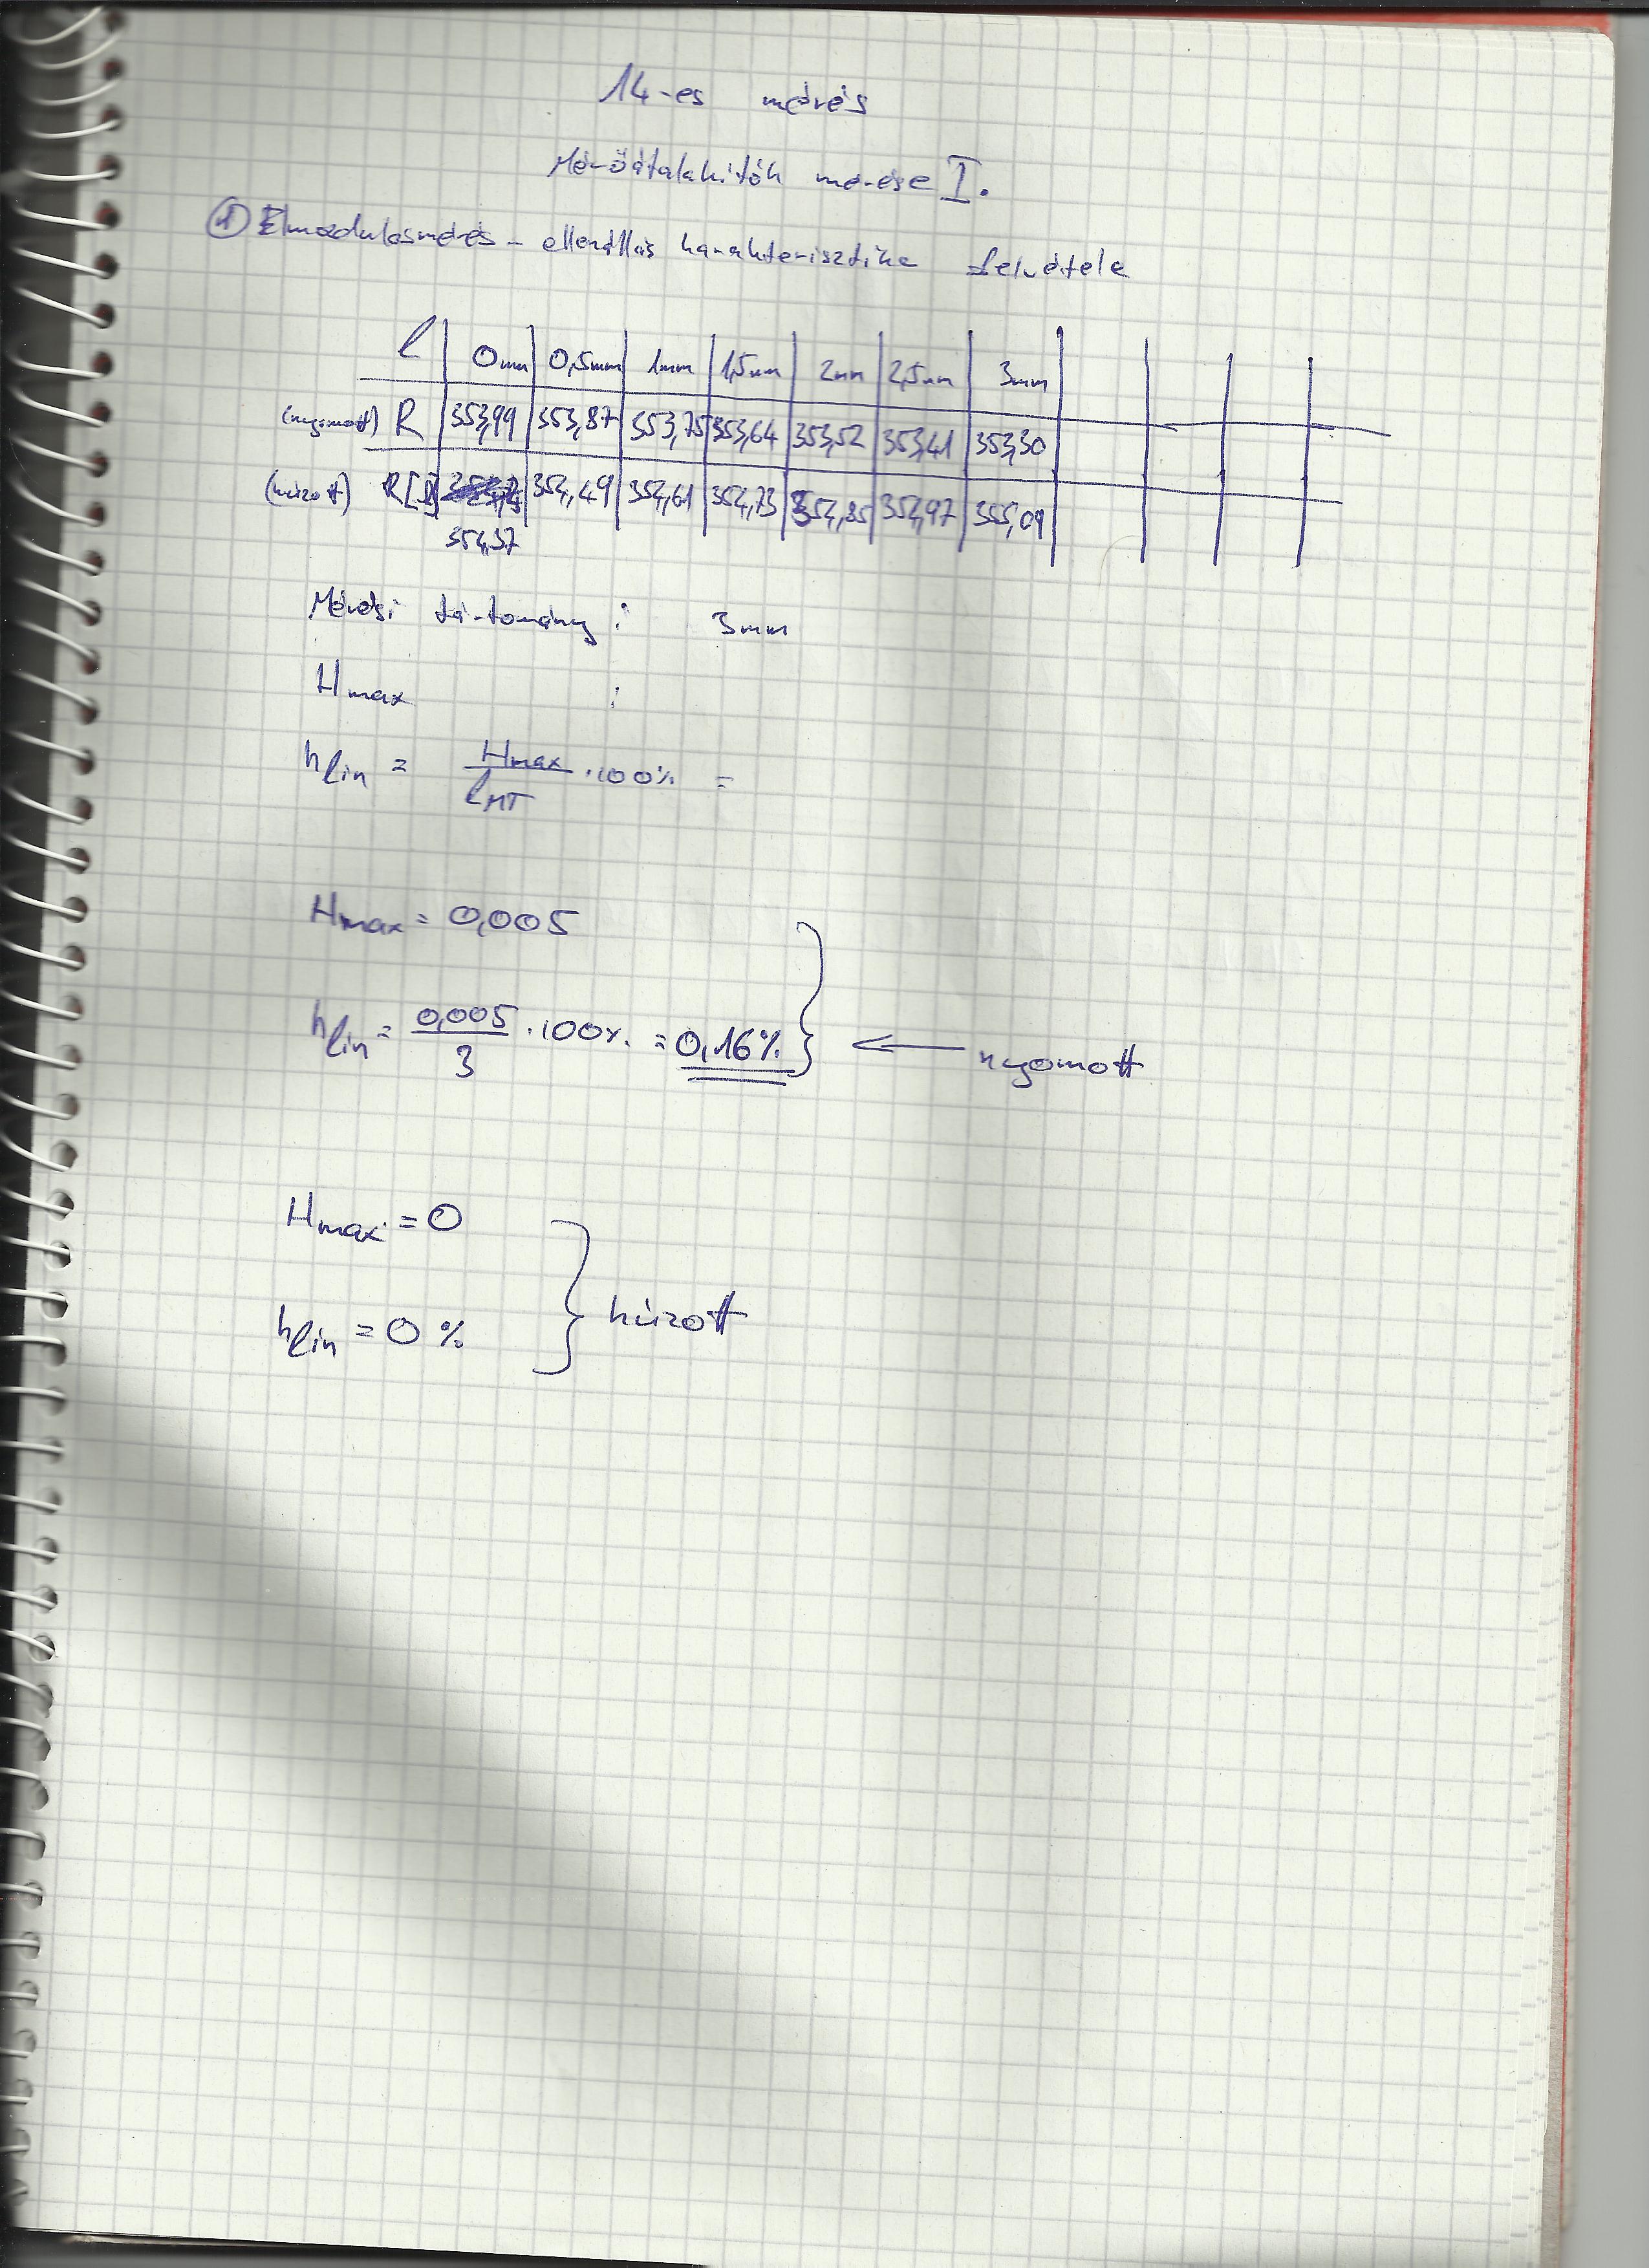 14-es mérés
Mérőátalakítók mérése I.
① Elmozdulásmérés - ellenállás karakterisztika felvétele
l 0mm 0,5mm 1mm 1,5mm 2mm 2,5mm 3mm
(nyomott) R 353,99 353,87 353,75 353,64 353,52 353,41 353,30
(húzott) R[Ω] 354,49 354,61 354,73 354,85 354,97 355,09
354,37
Mérési tartomány : 3mm
Hmax :
hlin = Hmax / lMT · 100% =
Hmax = 0,005
hlin = 0,005 / 3 · 100% = 0,16% ← nyomott
Hmax = 0
hlin = 0 % } húzott